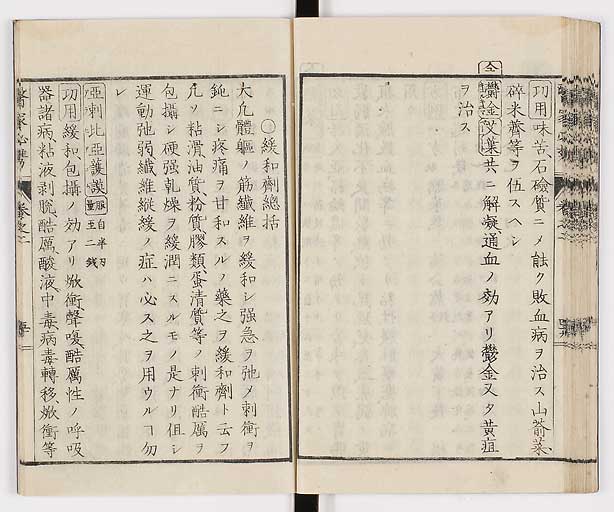 功用味苦石硷質ニメ蝕ク敗血病ヲ治ス山萮菜
碎米薺等ヲ伍スヘシ
仝
鬱金艾葉共ニ解凝通血ノ効アリ鬱金又タ黄疸
ヲ治ス
○緩和劑總括
大凢體軀ノ筋纎維ヲ緩和シ强急ヲ弛メ刺衝ヲ
鈍ニシ疼痛ヲ甘和スルノ藥之ヲ緩和劑ト云フ
凢ソ粘滑油質粉質膠類蛋清質等ノ刺衝酷厲ヲ
包攝シ硬强乾燥ヲ緩潤ニスルモノ是ナリ但シ
運動弛弱纎維縱緩ノ症ハ必ス之ヲ用ウルヿ勿
レ
亞剌比亞護謨服量自半刃至二錢
功用緩和包攝ノ効アリ焮衝聲嗄酷厲性ノ呼吸
器諸病粘液剥脫酷厲酸液中毒病毒轉移焮衝等